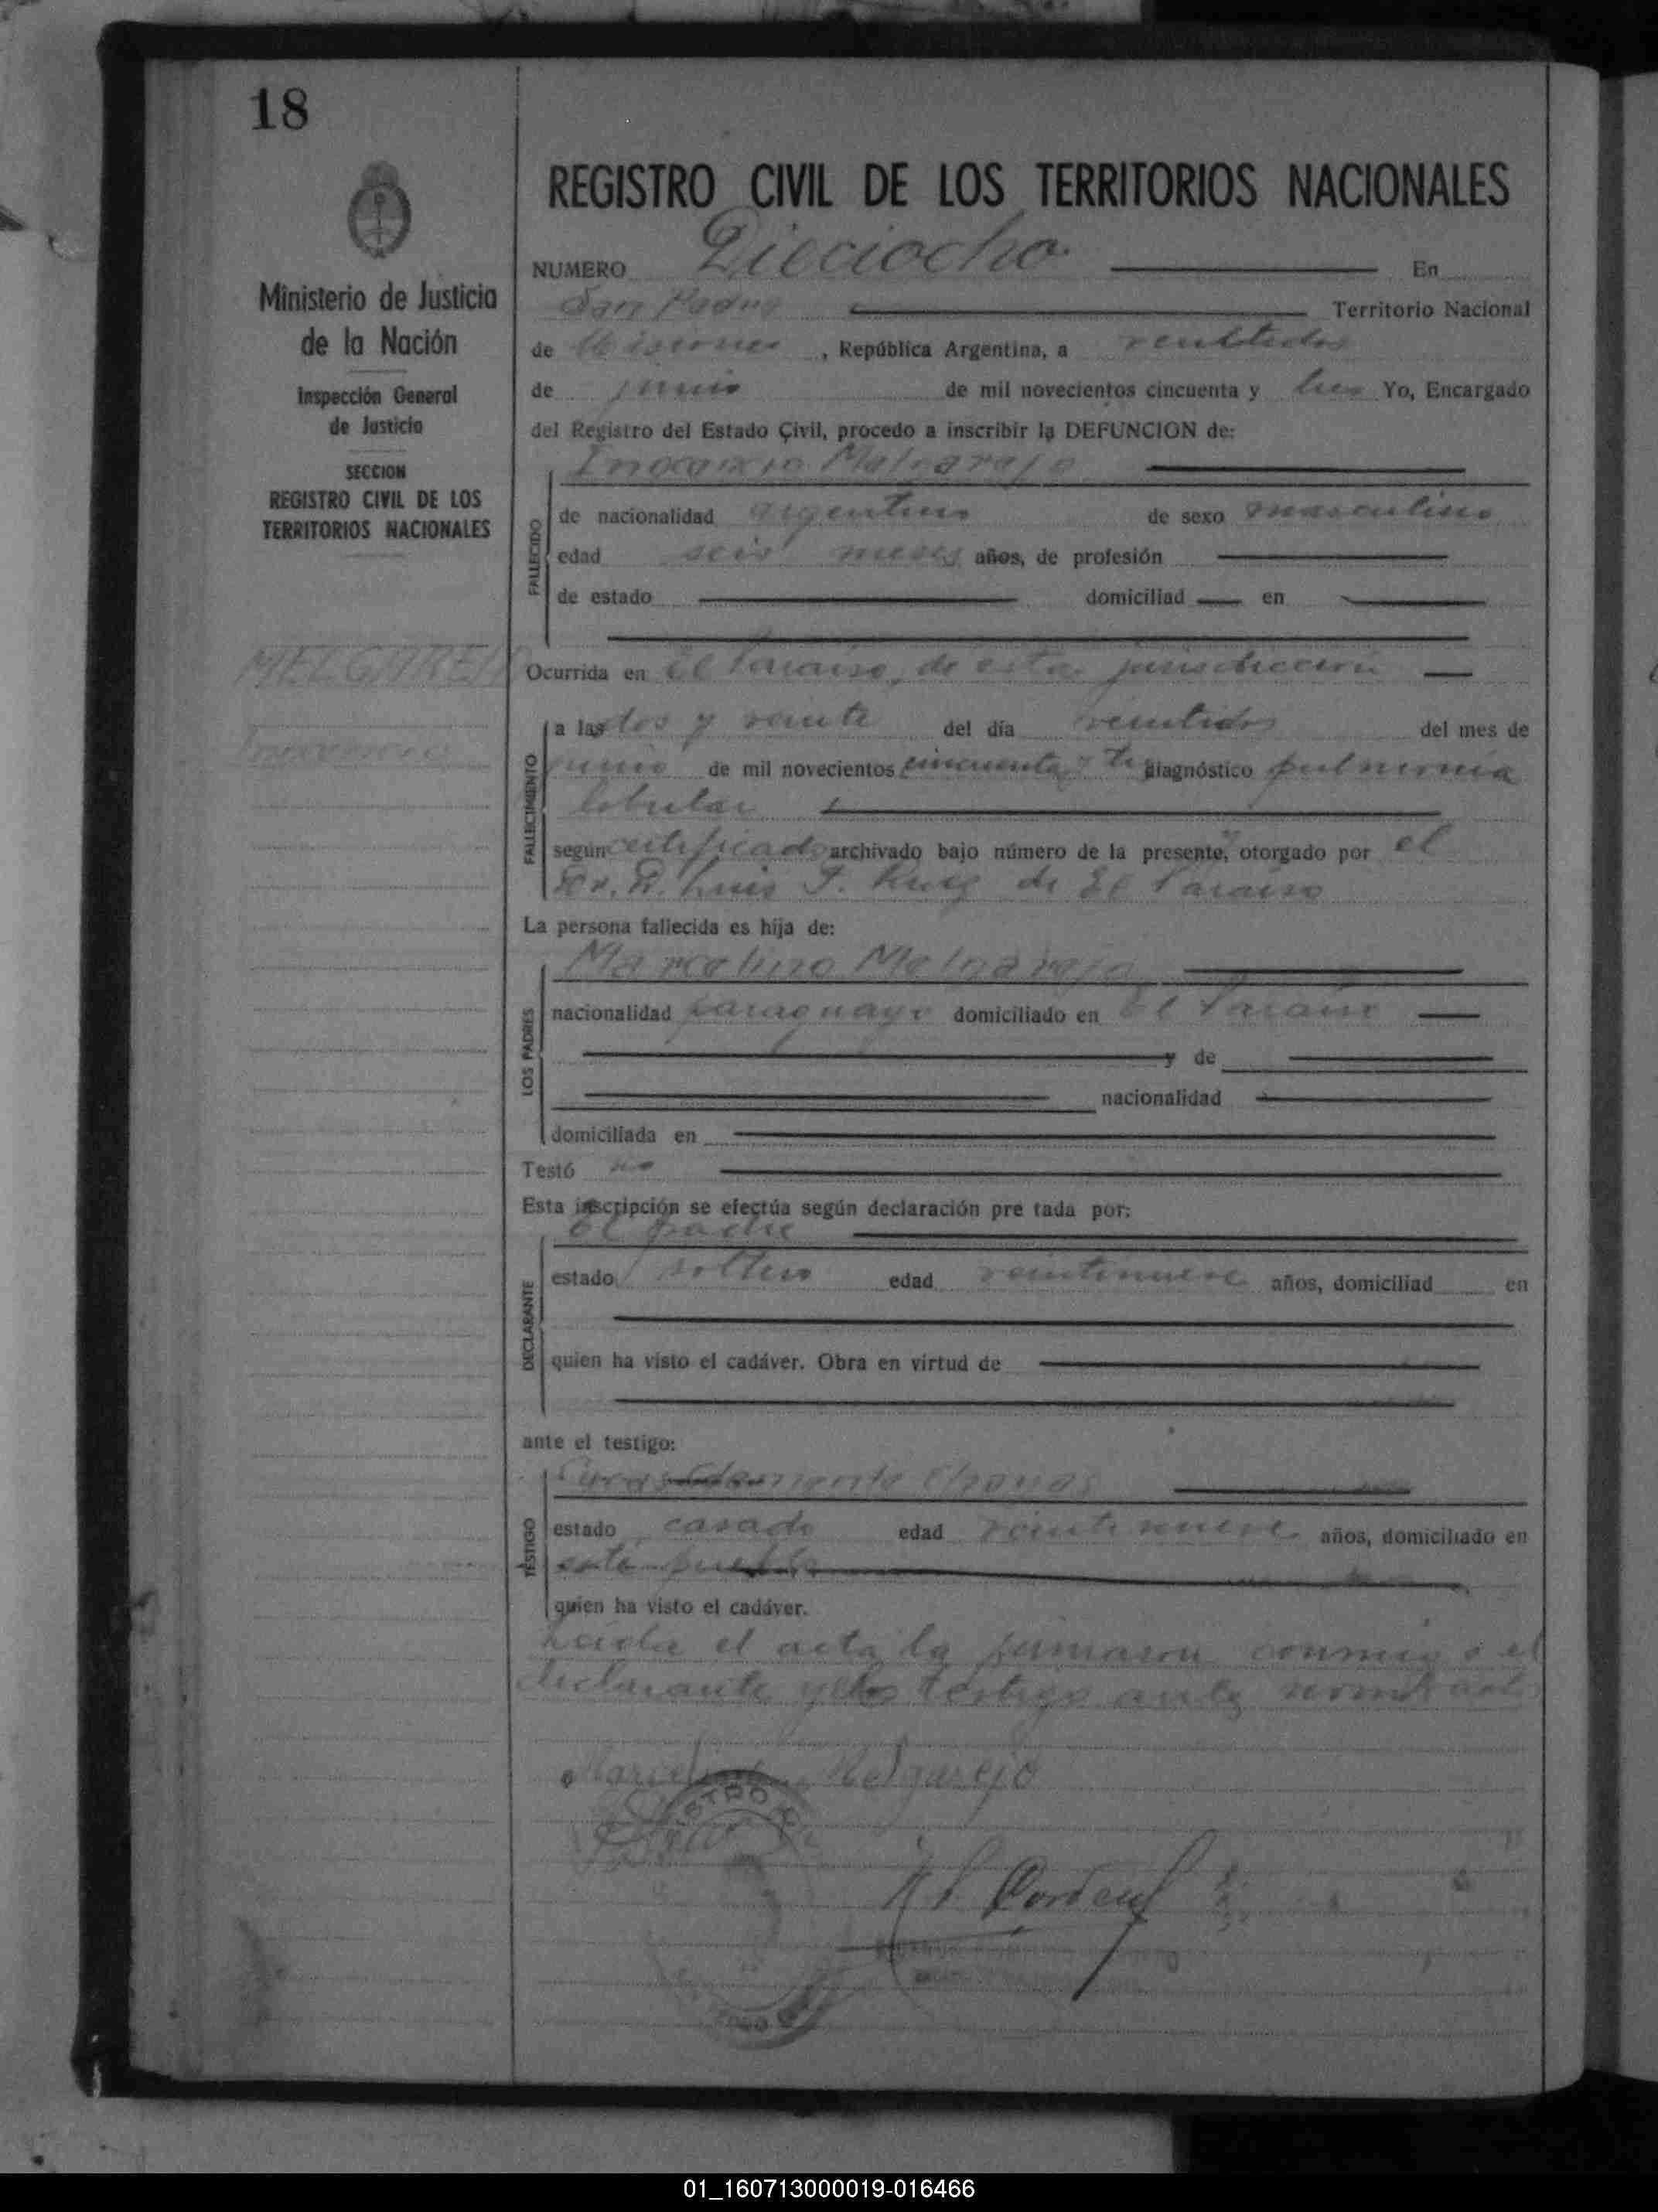 18
Ministerio de Justicia
de la Nación
Inspección General
de Justicia
SECCION
REGISTRO CIVIL DE LOS
TERRITORIOS NACIONALES
MELGAREJO
Inocencio
REGISTRO CIVIL DE LOS TERRITORIOS NACIONALES
NUMERO Dieciocho En
San Pedro Territorio Nacional
de Misiones, República Argentina, a veintidos
de junio de mil novecientos cincuenta y tres Yo, Encargado
del Registro del Estado Civil, procedo a inscribir la DEFUNCION de:
Inocencio Melgarejo
FALLECIDO
de nacionalidad argentino de sexo masculino
edad seis meses años, de profesión
de estado domiciliad en
Ocurrida en El Paraiso, de esta jurisdiccion
FALLECIMIENTO
a las dos y veinte del día veintidos del mes de
junio de mil novecientos cincuenta y tres diagnóstico pulmonia
lobular
según certificado archivado bajo número de la presente, otorgado por el
D. Luis F. de El Paraiso
La persona fallecida es hija de:
LOS PADRES
Marcelino Melgarejo
nacionalidad paraguayo domiciliado en El Paraiso
y de
nacionalidad
domiciliada en
Testó no
Esta inscripción se efectúa según declaración pre tada por:
DECLARANTE
el padre
estado soltero edad veintinueve años, domiciliad en
quien ha visto el cadáver. Obra en virtud de
ante el testigo:
TESTIGO
estado casado edad veintinueve años, domiciliado en
este pueblo
quien ha visto el cadáver.
Leida el acta la firmaron conmigo el
declarante y el testigo antes nombrado
Marcelino Melgarejo
01_160713000019-016466